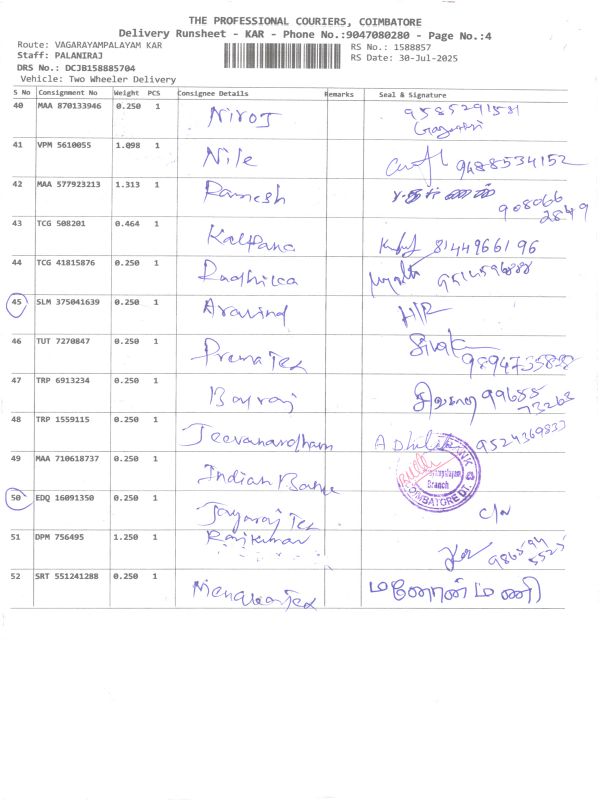 THE PROFESSIONAL COURIERS, COIMBATORE
Delivery Runsheet - KAR - Phone No.:9047080280 - Page No.:4
Route: VAGARAYAMPALAYAM KAR
RS No.: 1588857
Staff: PALANIRAJ
RS Date: 30-Jul-2025
DRS No.: DCJB158885704
Vehicle: Two Wheeler Delivery
S No Consignment No Weight PCS Consignee Details Remarks Seal & Signature
40 MAA 870133946 0.250 1 Niroj 9585291531
Gayathri
41 VPM 5610055 1.098 1 Nile 9488534152
42 MAA 577923213 1.313 1 Ramesh
908066
2849
43 TCG 508201 0.464 1 Kalpana 8144966196
44 TCG 41815876 0.250 1 Radhika
45 SLM 375041639 0.250 1 Aravind H/R
46 TUT 7270847 0.250 1 Prema Tex Siva
47 TRP 6913234 0.250 1 99655
73263
48 TRP 1559115 0.250 1 Jeevanardham 9524369833
49 MAA 710618737 0.250 1 Indian Bank
BANK
Branch
COIMBATORE DT.
50 EDQ 16091350 0.250 1 Jayaraj Tex
51 DPM 756495 1.250 1 Rajkumar
52 SRT 551241288 0.250 1